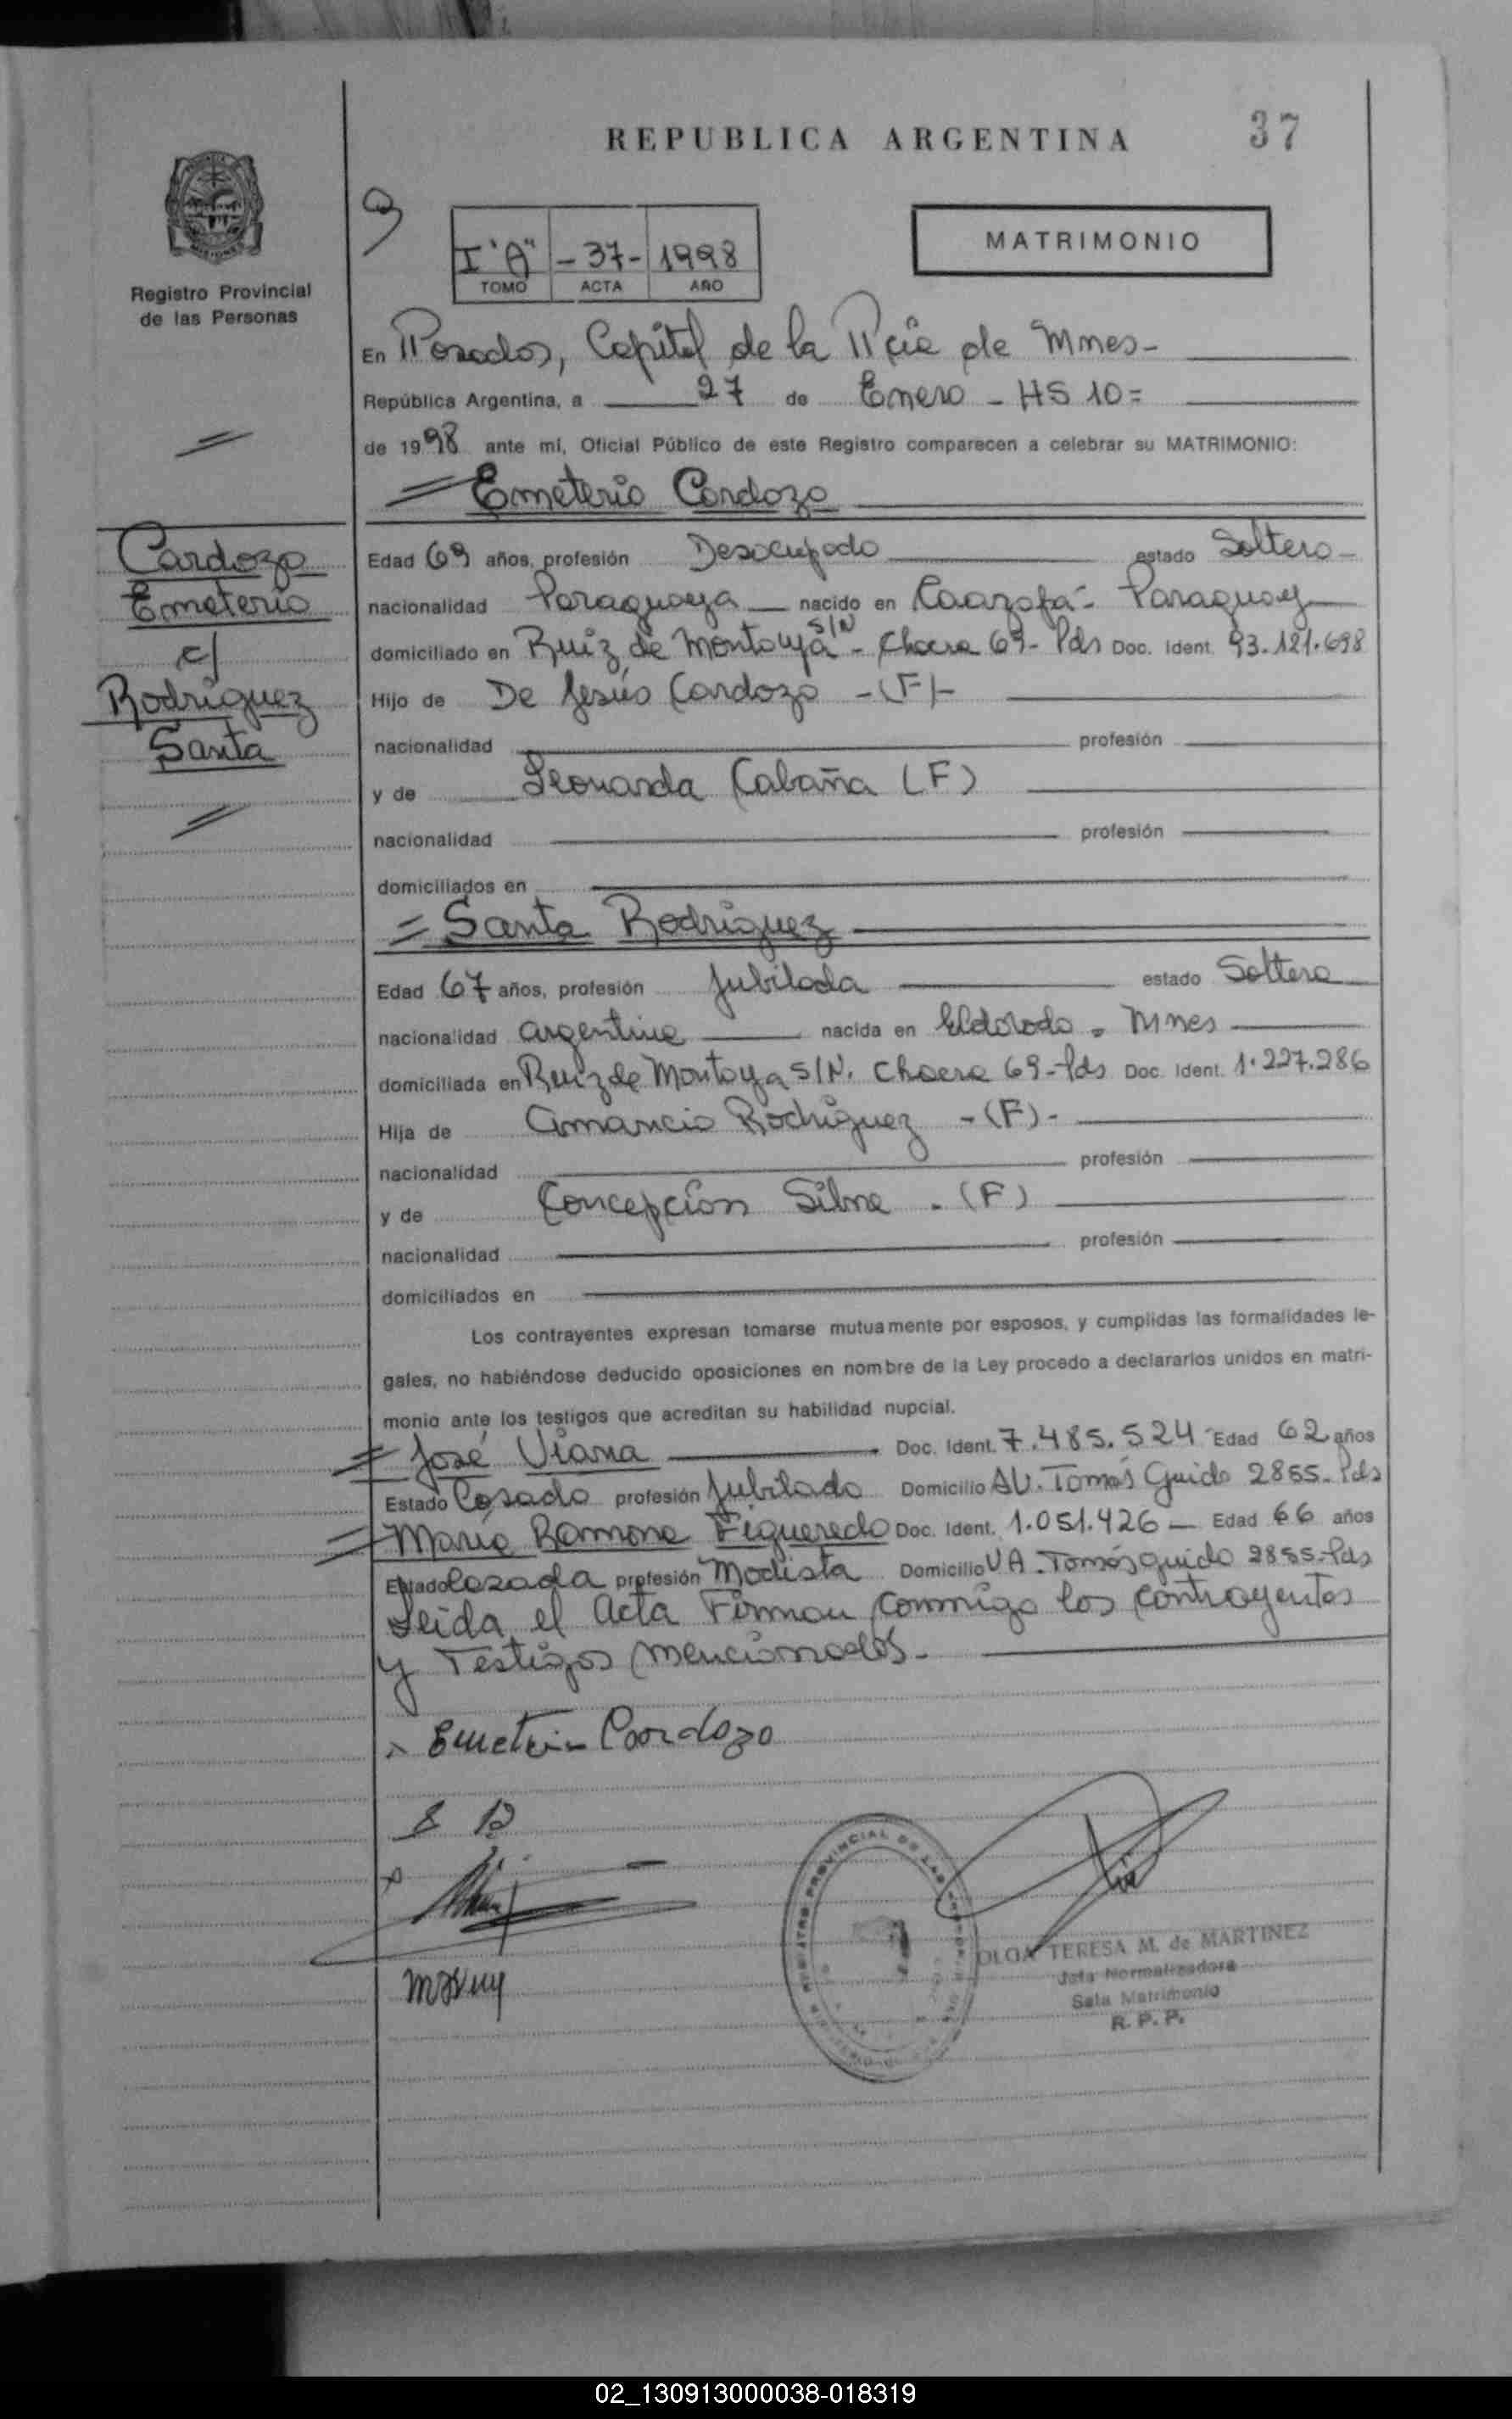 REPUBLICA ARGENTINA
37
Registro Provincial
de las Personas
I "A" - 37 - 1998
TOMO ACTA AÑO
MATRIMONIO
En Posadas, Capital de la Pcia de Mnes-
República Argentina, a 27 de Enero - HS 10=
de 1998 ante mí, Oficial Público de este Registro comparecen a celebrar su MATRIMONIO:
= Emeterio Cardozo
Cardozo
Emeterio
c/
Rodriguez
Santa
Edad 69 años, profesión Desocupado estado Soltero-
nacionalidad Paraguaya nacido en Caazapá- Paraguay
domiciliado en Ruiz de Montoya S/N - Chacra 69- Pds Doc. Ident. 93.121.698
Hijo de De Jesús Cardozo -(F)-
nacionalidad profesión
y de Leonarda Cabaña (F)
nacionalidad profesión
domiciliados en
= Santa Rodriguez
Edad 67 años, profesión Jubilada estado Soltera
nacionalidad argentina nacida en Eldorado - Mnes
domiciliada en Ruiz de Montoya S/N. Chacra 69-Pds Doc. Ident. 1.227.286
Hija de Amancio Rodriguez -(F)-
nacionalidad profesión
y de Concepción Silva - (F)
nacionalidad profesión
domiciliados en
Los contrayentes expresan tomarse mutuamente por esposos, y cumplidas las formalidades le-
gales, no habiéndose deducido oposiciones en nombre de la Ley procedo a declararlos unidos en matri-
monio ante los testigos que acreditan su habilidad nupcial.
= José Viana Doc. Ident. 7.485.524 Edad 62 años
Estado Casado profesión Jubilado Domicilio AV. Tomás Guido 2855- Pds
= María Ramona Figueredo Doc. Ident. 1.051.426 - Edad 66 años
Estado Casada profesión Modista Domicilio VA. Tomás guido 2855-Pds
Leida el Acta Firman conmigo los contrayentes
y Testigos mencionados.-
x Emeterio Cardozo
OLGA TERESA M. de MARTINEZ
Jefa Normalizadora
Sala Matrimonio
R. P. P.
02_130913000038-018319